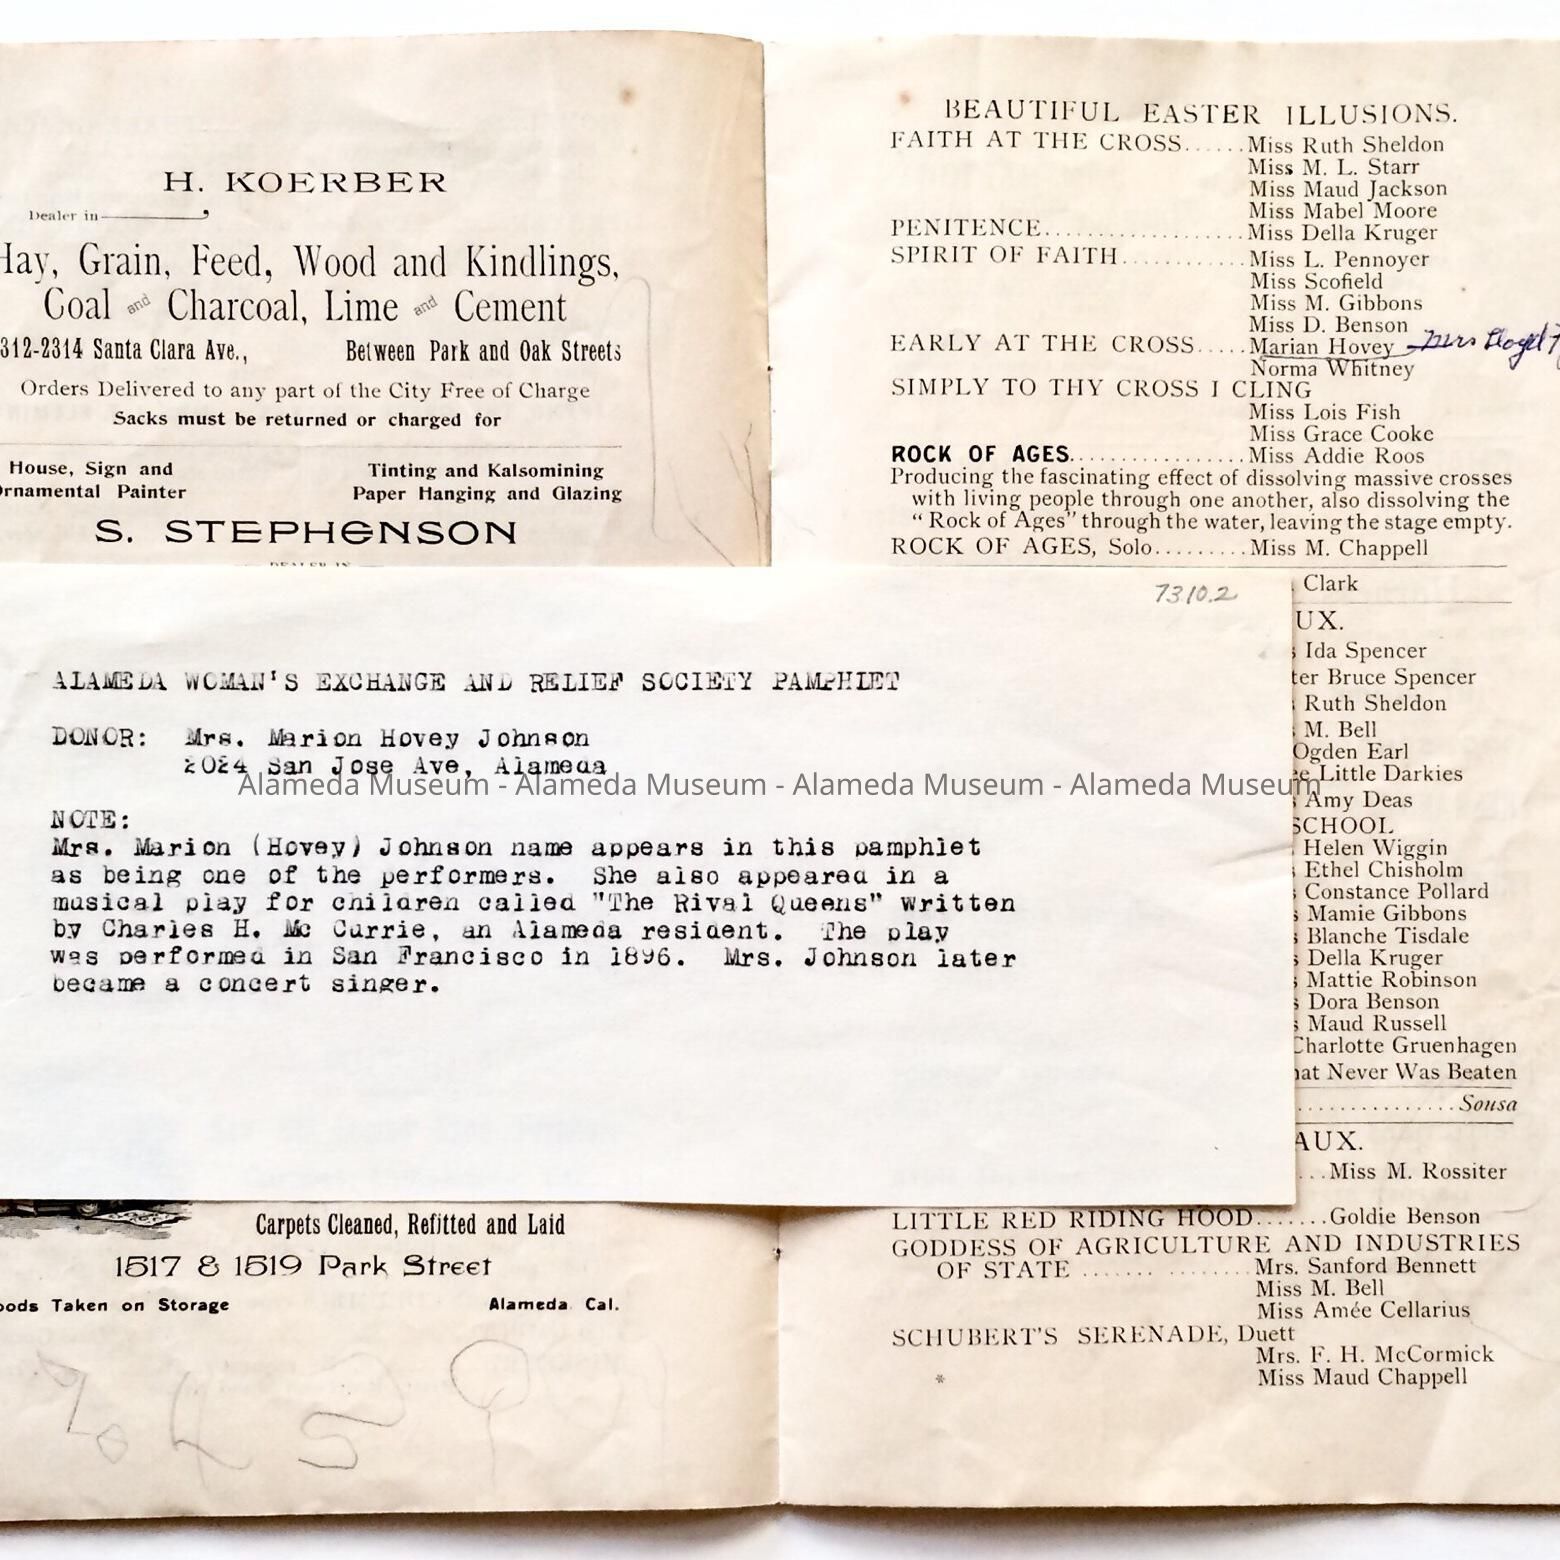 H. KOERBER
Dealer in
Hay, Grain, Feed, Wood and Kindlings,
Coal and Charcoal, Lime and Cement
312-2314 Santa Clara Ave., Between Park and Oak Streets
Orders Delivered to any part of the City Free of Charge
Sacks must be returned or charged for
House, Sign and
Ornamental Painter
Tinting and Kalsomining
Paper Hanging and Glazing
S. STEPHENSON
DEALER IN
Carpets Cleaned, Refitted and Laid
1517 & 1519 Park Street
oods Taken on Storage Alameda Cal.
BEAUTIFUL EASTER ILLUSIONS.
FAITH AT THE CROSS......Miss Ruth Sheldon
Miss M. L. Starr
Miss Maud Jackson
Miss Mabel Moore
PENITENCE....................Miss Della Kruger
SPIRIT OF FAITH............Miss L. Pennoyer
Miss Scofield
Miss M. Gibbons
Miss D. Benson
EARLY AT THE CROSS.....Marian Hovey Mrs Lloyd
Norma Whitney
SIMPLY TO THY CROSS I CLING
Miss Lois Fish
Miss Grace Cooke
ROCK OF AGES.................Miss Addie Roos
Producing the fascinating effect of dissolving massive crosses
with living people through one another, also dissolving the
"Rock of Ages" through the water, leaving the stage empty.
ROCK OF AGES, Solo.........Miss M. Chappell
Clark
UX.
s Ida Spencer
ter Bruce Spencer
Ruth Sheldon
M. Bell
Ogden Earl
ee Little Darkies
s Amy Deas
SCHOOL
Helen Wiggin
s Ethel Chisholm
s Constance Pollard
s Mamie Gibbons
s Blanche Tisdale
s Della Kruger
s Mattie Robinson
s Dora Benson
s Maud Russell
Charlotte Gruenhagen
hat Never Was Beaten
................Sousa
AUX.
...Miss M. Rossiter
LITTLE RED RIDING HOOD.......Goldie Benson
GODDESS OF AGRICULTURE AND INDUSTRIES
OF STATE ....... .........Mrs. Sanford Bennett
Miss M. Bell
Miss Amée Cellarius
SCHUBERT'S SERENADE, Duett
Mrs. F. H. McCormick
* Miss Maud Chappell
7310.2
ALAMEDA WOMAN'S EXCHANGE AND RELIEF SOCIETY PAMPHLET
DONOR: Mrs. Marion Hovey Johnson
2024 San Jose Ave, Alameda
Alameda Museum - Alameda Museum - Alameda Museum - Alameda Museum
NOTE:
Mrs. Marion (Hovey) Johnson name appears in this pamphlet
as being one of the performers. She also appeared in a
musical play for children called "The Rival Queens" written
by Charles H. Mc Currie, an Alameda resident. The play
was performed in San Francisco in 1896. Mrs. Johnson later
became a concert singer.